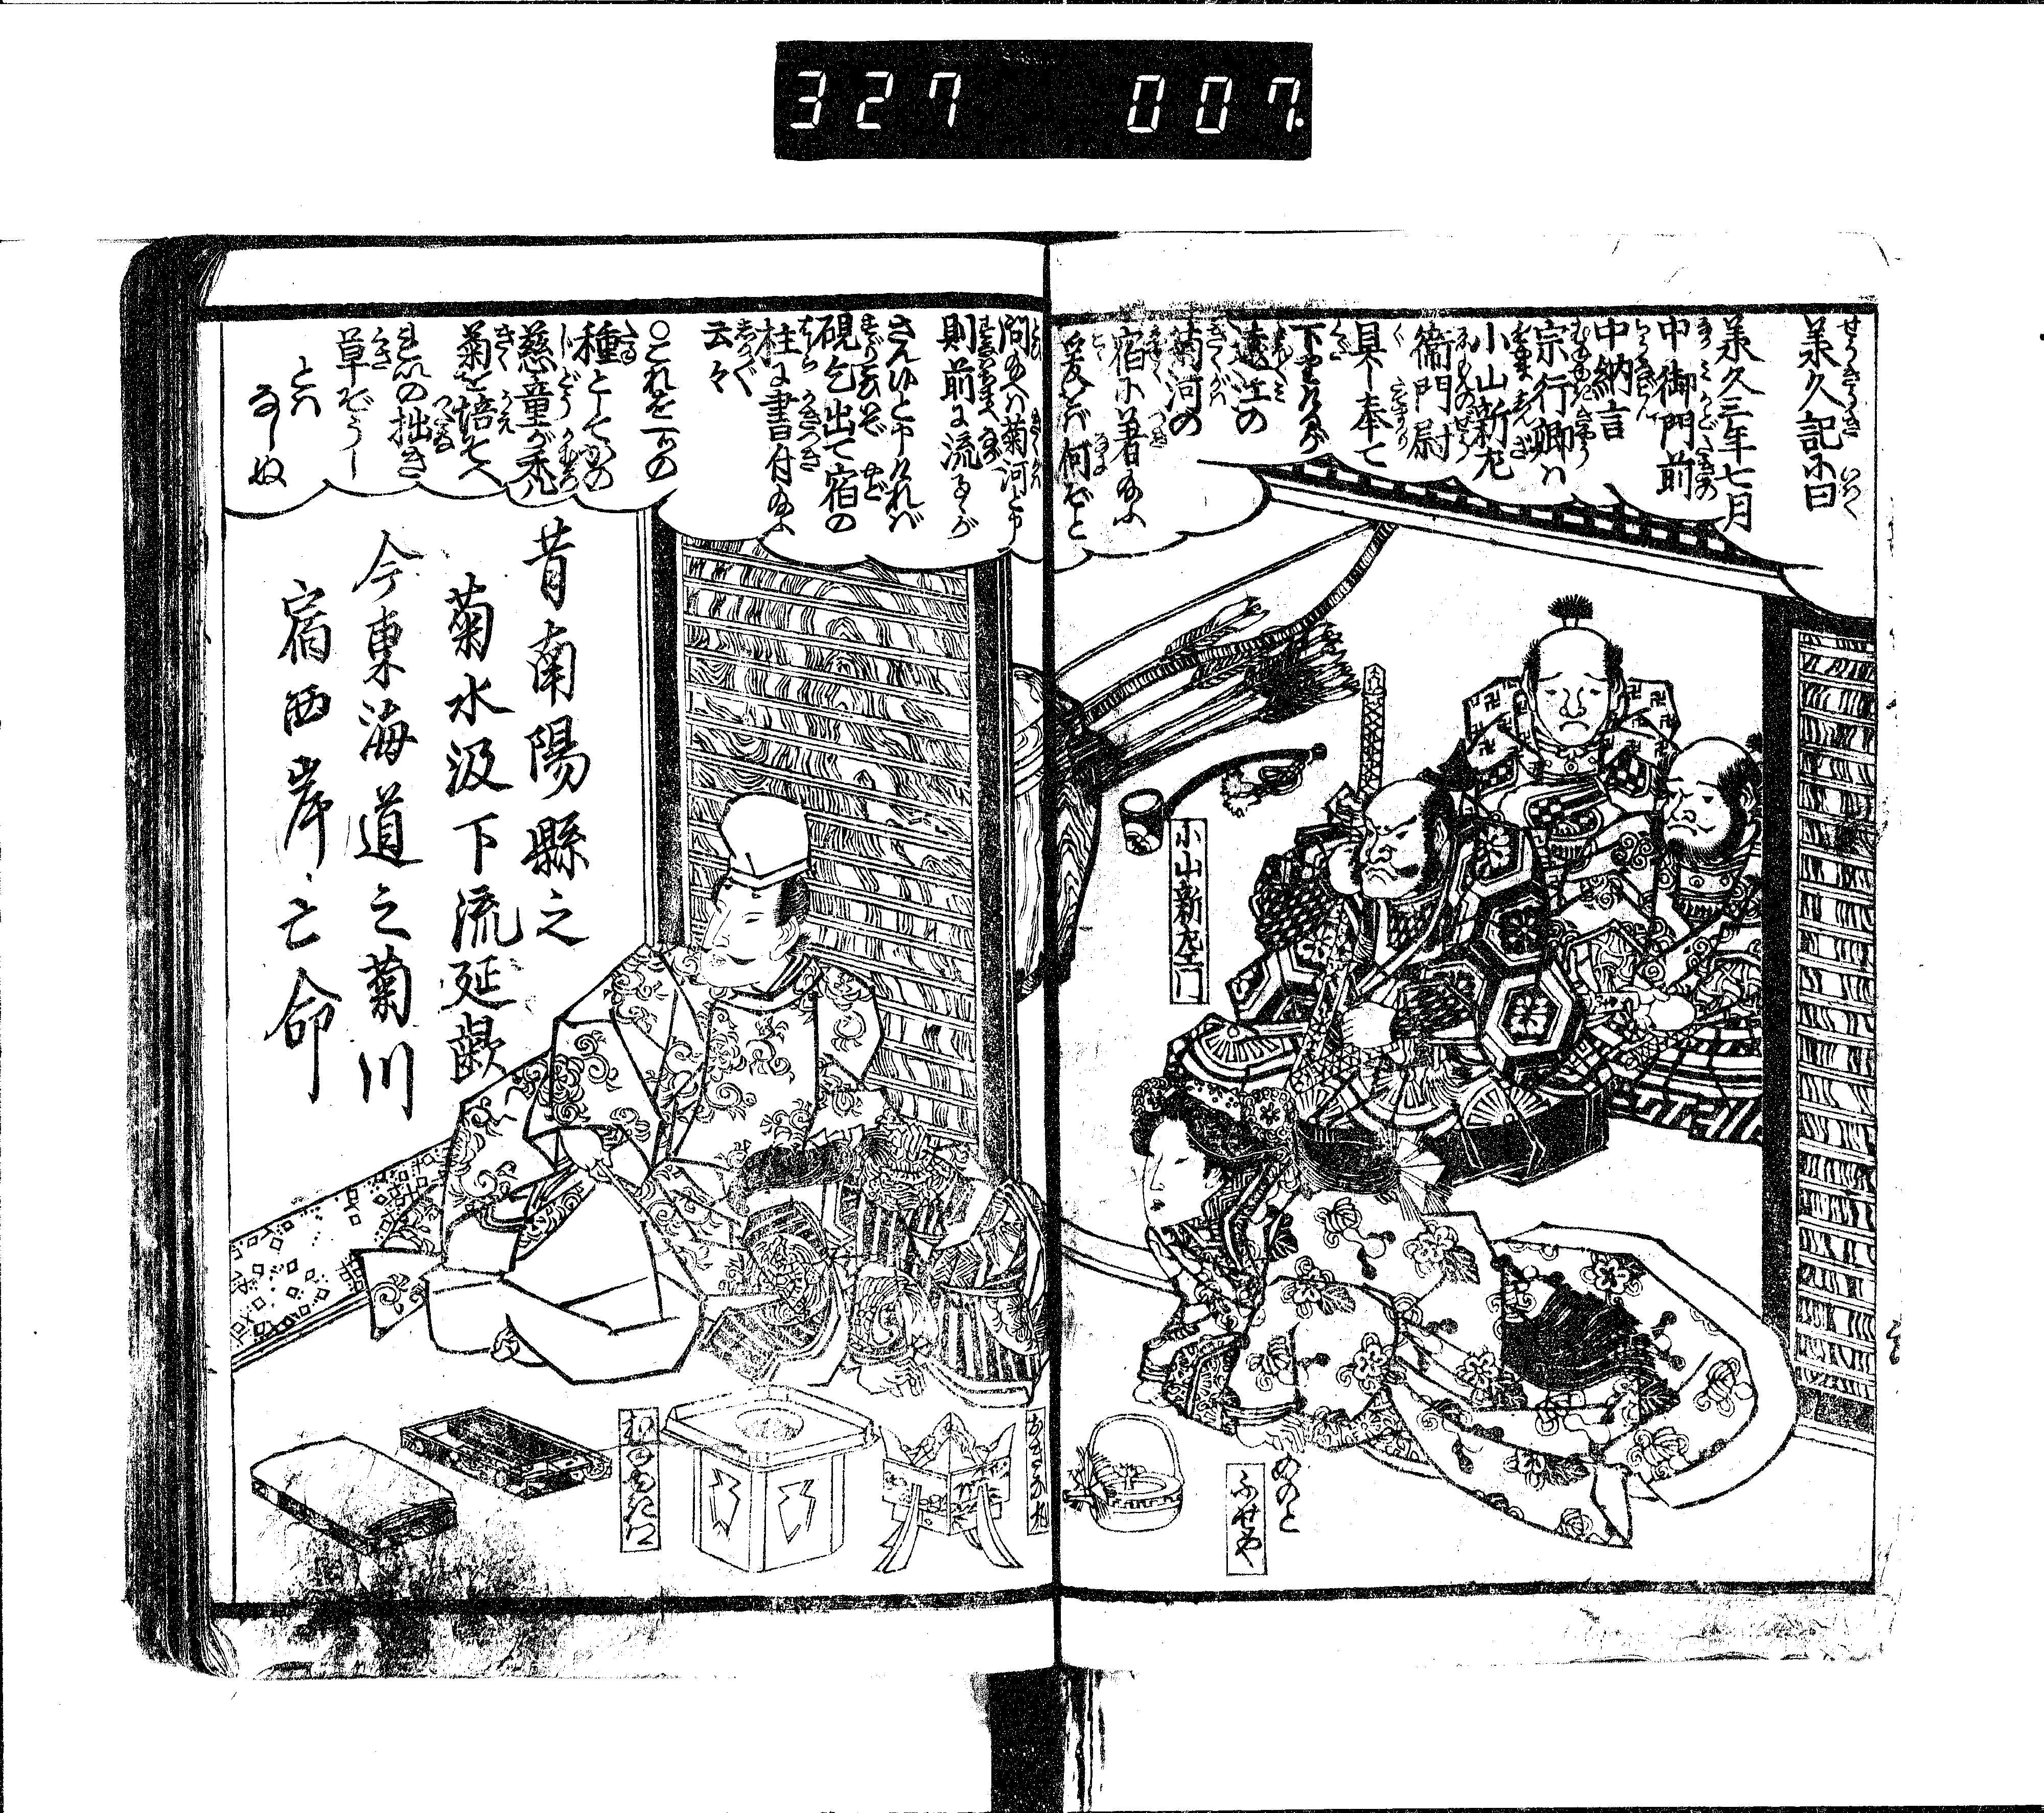 327 007
承久記に曰
承久三年七月
中御門前
中納言
宗行卿ハ
小山新左
衛門尉
具し奉て
下りけるが
遠江の
菊河の
宿に着給ふ
爰をバ何ぞと
問給へバ菊河と申
則前に流るゝが
さん候と申けれバ
硯乞出て宿の
柱に書付給ふ
云々
○これを一部の
種として
慈童が
菊を培そへ
の拙き
草ぞうし
とハ
なしぬ
昔南陽縣之
菊水汲下流延齢
今東海道之菊川
宿西岸亡命
小山新左エ門
めのと
ふせや